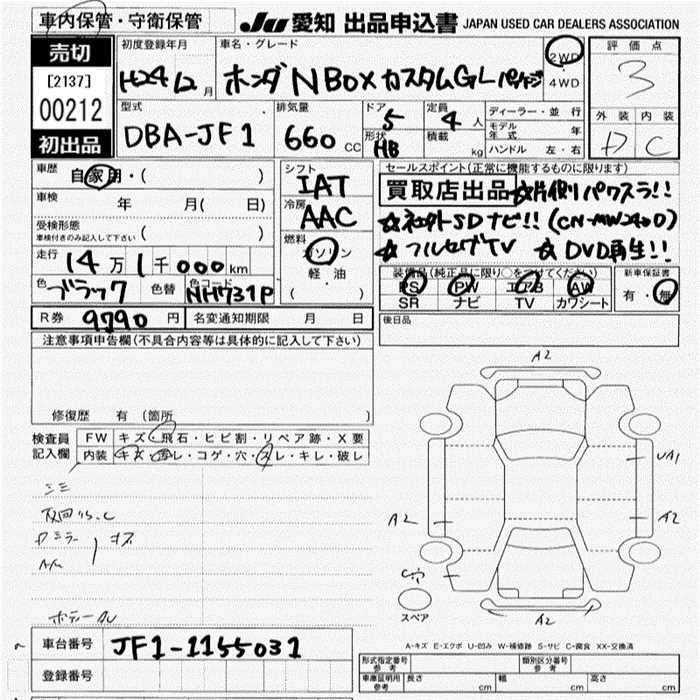 車内保管・守衛保管
JU 愛知 出品申込書 JAPAN USED CAR DEALERS ASSOCIATION
売切
[2137]
00212
初出品
初度登録年月
H24 12月
車名・グレード
ホンダ N BOX カスタム GL パッケージ
2WD
・
4WD
評価点
3
外装 内装
D C
型式
DBA-JF1
排気量
660 cc
ドア 5
形状 HB
定員 4 人
積載 kg
ディーラー・並行
モデル年式 年
ハンドル 左・右
車歴 自家用・( )
車検 年 月( 日)
受検形態
車検付きのみ記入して下さい ( )
走行 14万1千000km
色 ブラック 色替 色コード NH731P
シフト
IAT
冷房
AAC
燃料
ガソリン
軽油
( )
セールスポイント(正常に機能するものに限ります)
買取店出品 ☆片側パワスラ!!
☆社外SDナビ!! (CN-MW240D)
☆フルセグTV ☆DVD再生!!
装備品(純正品に限り○をつけてください)
PS PW エアB AW
SR ナビ TV カワシート
新車保証書
有・無
R券 9790 円 名変通知期限 月 日
後日品
注意事項申告欄(不具合内容等は具体的に記入して下さい)
修復歴 有 (箇所 )
検査員記入欄
FW キズ・飛石・ヒビ割・リペア跡・X要
内装 キズ・汚レ・コゲ・穴・スレ・キレ・破レ
シミ
Dミラー キズ
A2
UA1
A2
A2
C穴
スペア
A2
車台番号 JF1-1155031
登録番号
A-キズ E-エクボ U-凹み W-補修跡 S-サビ C-腐食 XX-交換済
型式指定番号 参考
類別区分番号 参考
車庫証明用 参考 長さ cm 幅 cm 高さ cm